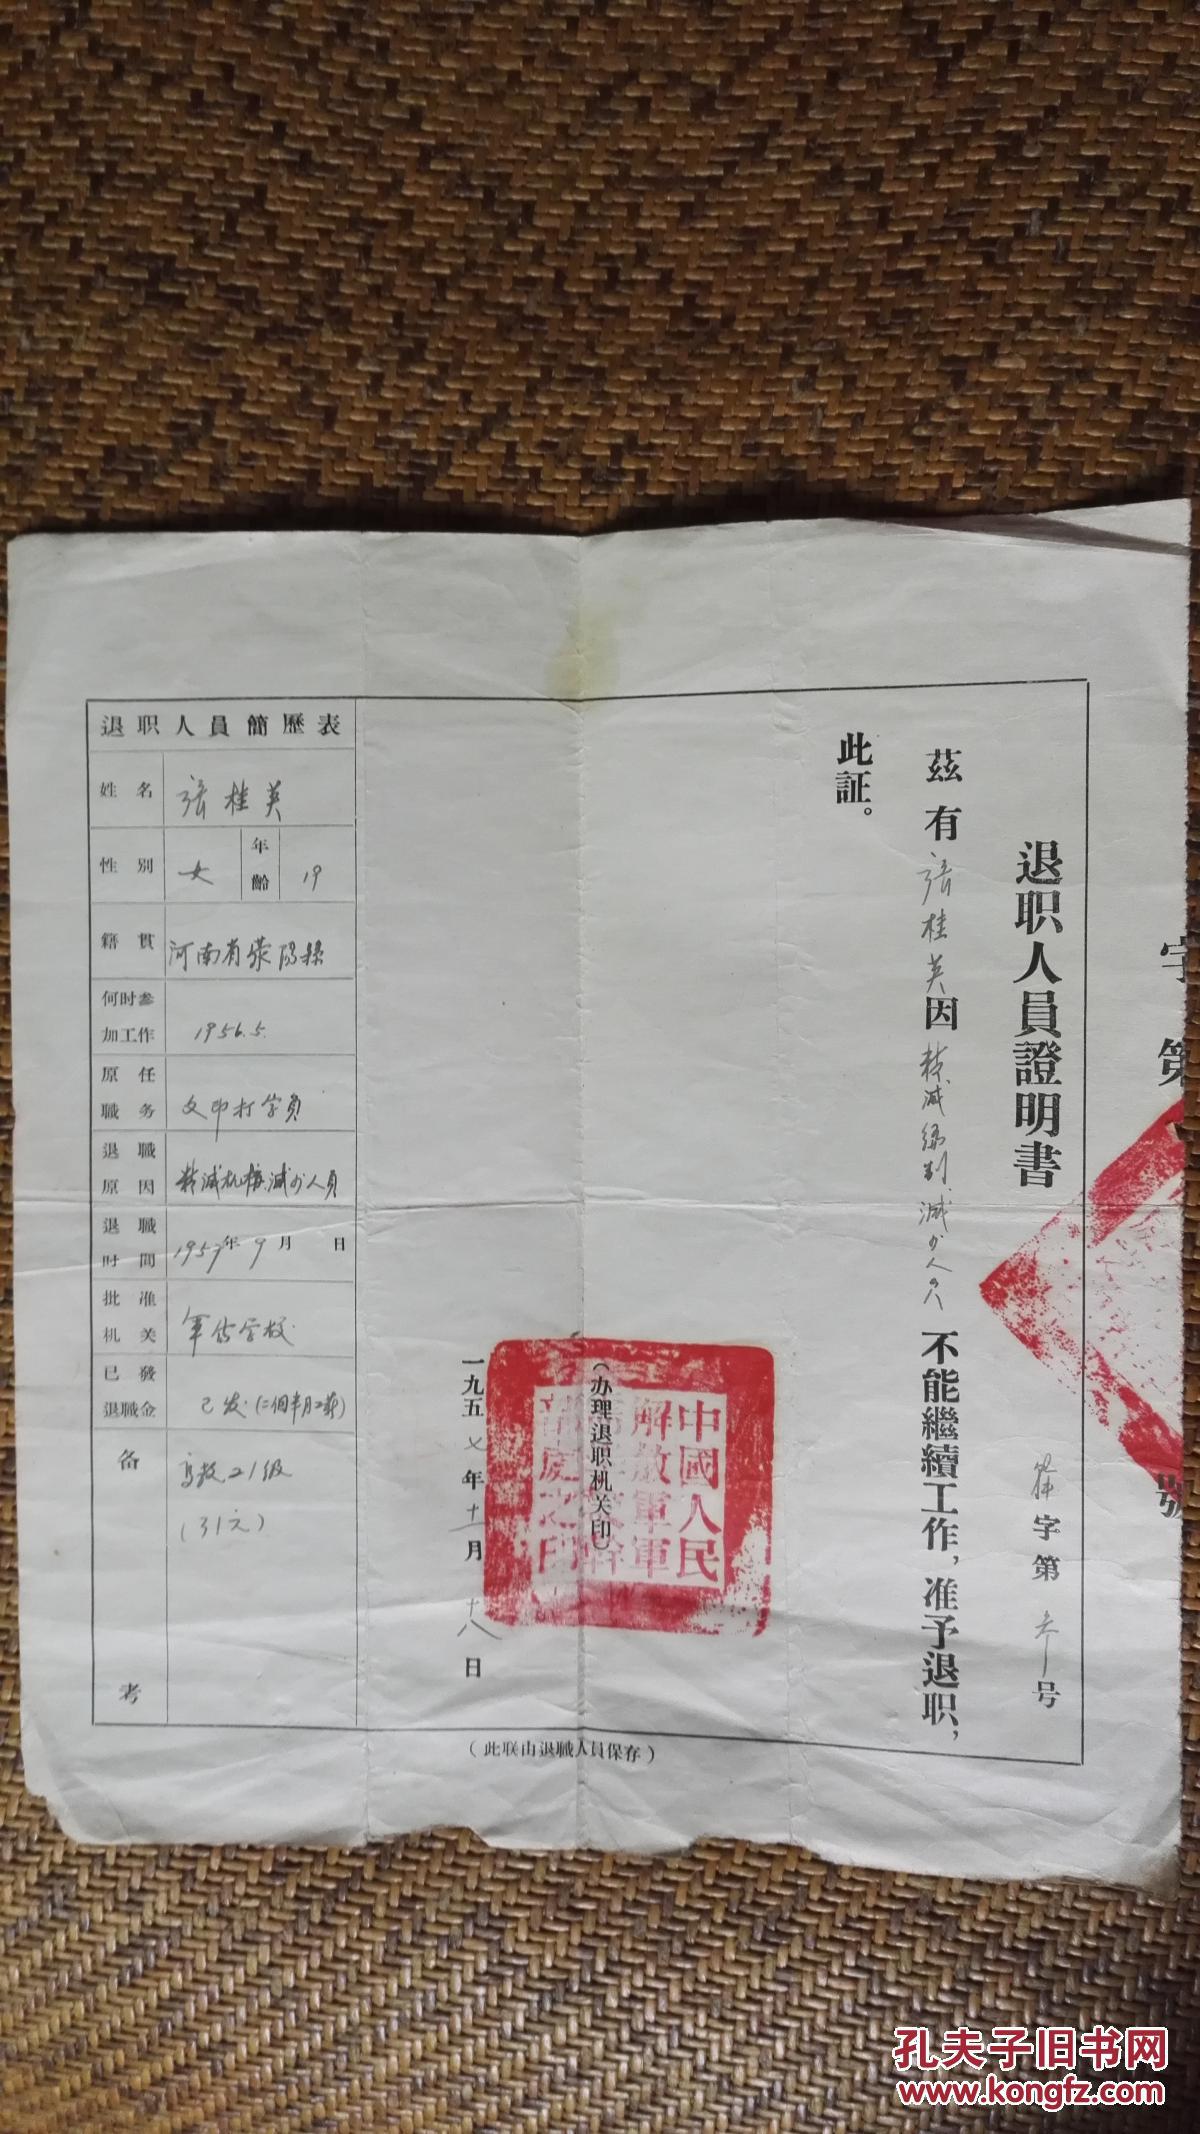 字第
號
退职人員證明書
字第
号
茲有張桂英因精减編制减少人员不能繼續工作，准予退职，
此証。
（办理退职机关印）
中國人民
解放軍軍
一九五七年十一月十八日
退职人員簡歷表
姓名 張桂英
性别 女 年齡 19
籍貫 河南省荥陽縣
何时参加工作 1956.5.
原任職务 文印打字員
退職原因 精减机構减少人員
退職时間 1957年9月 日
批准机关 軍
学校
已發退職金 已发(二個半月工薪)
备考
21级
(31元)
(此联由退職人員保存)
孔夫子旧书网
www.kongfz.com